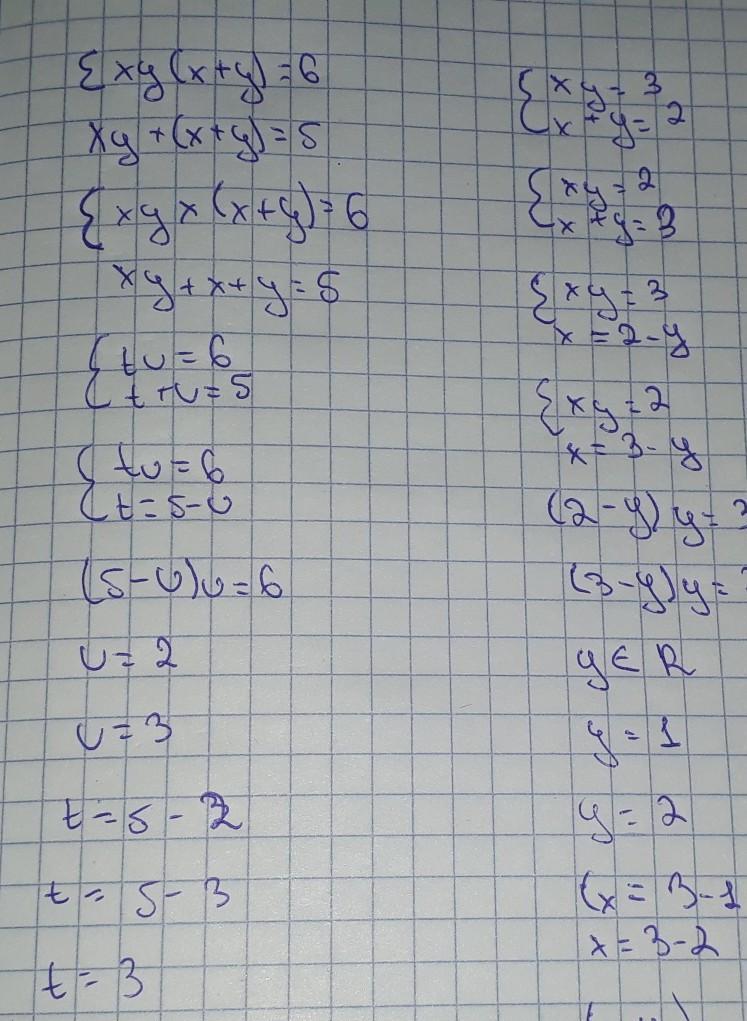 { xy(x+y)=6
xy+(x+y)=5
{ xy x (x+y)=6
xy+x+y=5
{ tv=6
t+v=5
{ tv=6
t=5-v
(5-v)v=6
v=2
v=3
t=5-2
t=5-3
t=3
{ xy=3
x+y=2
{ xy=2
x+y=3
{ xy=3
x=2-y
{ xy=2
x=3-y
(2-y)y=3
(3-y)y=
y∈R
y=1
y=2
(x=3-1
x=3-2